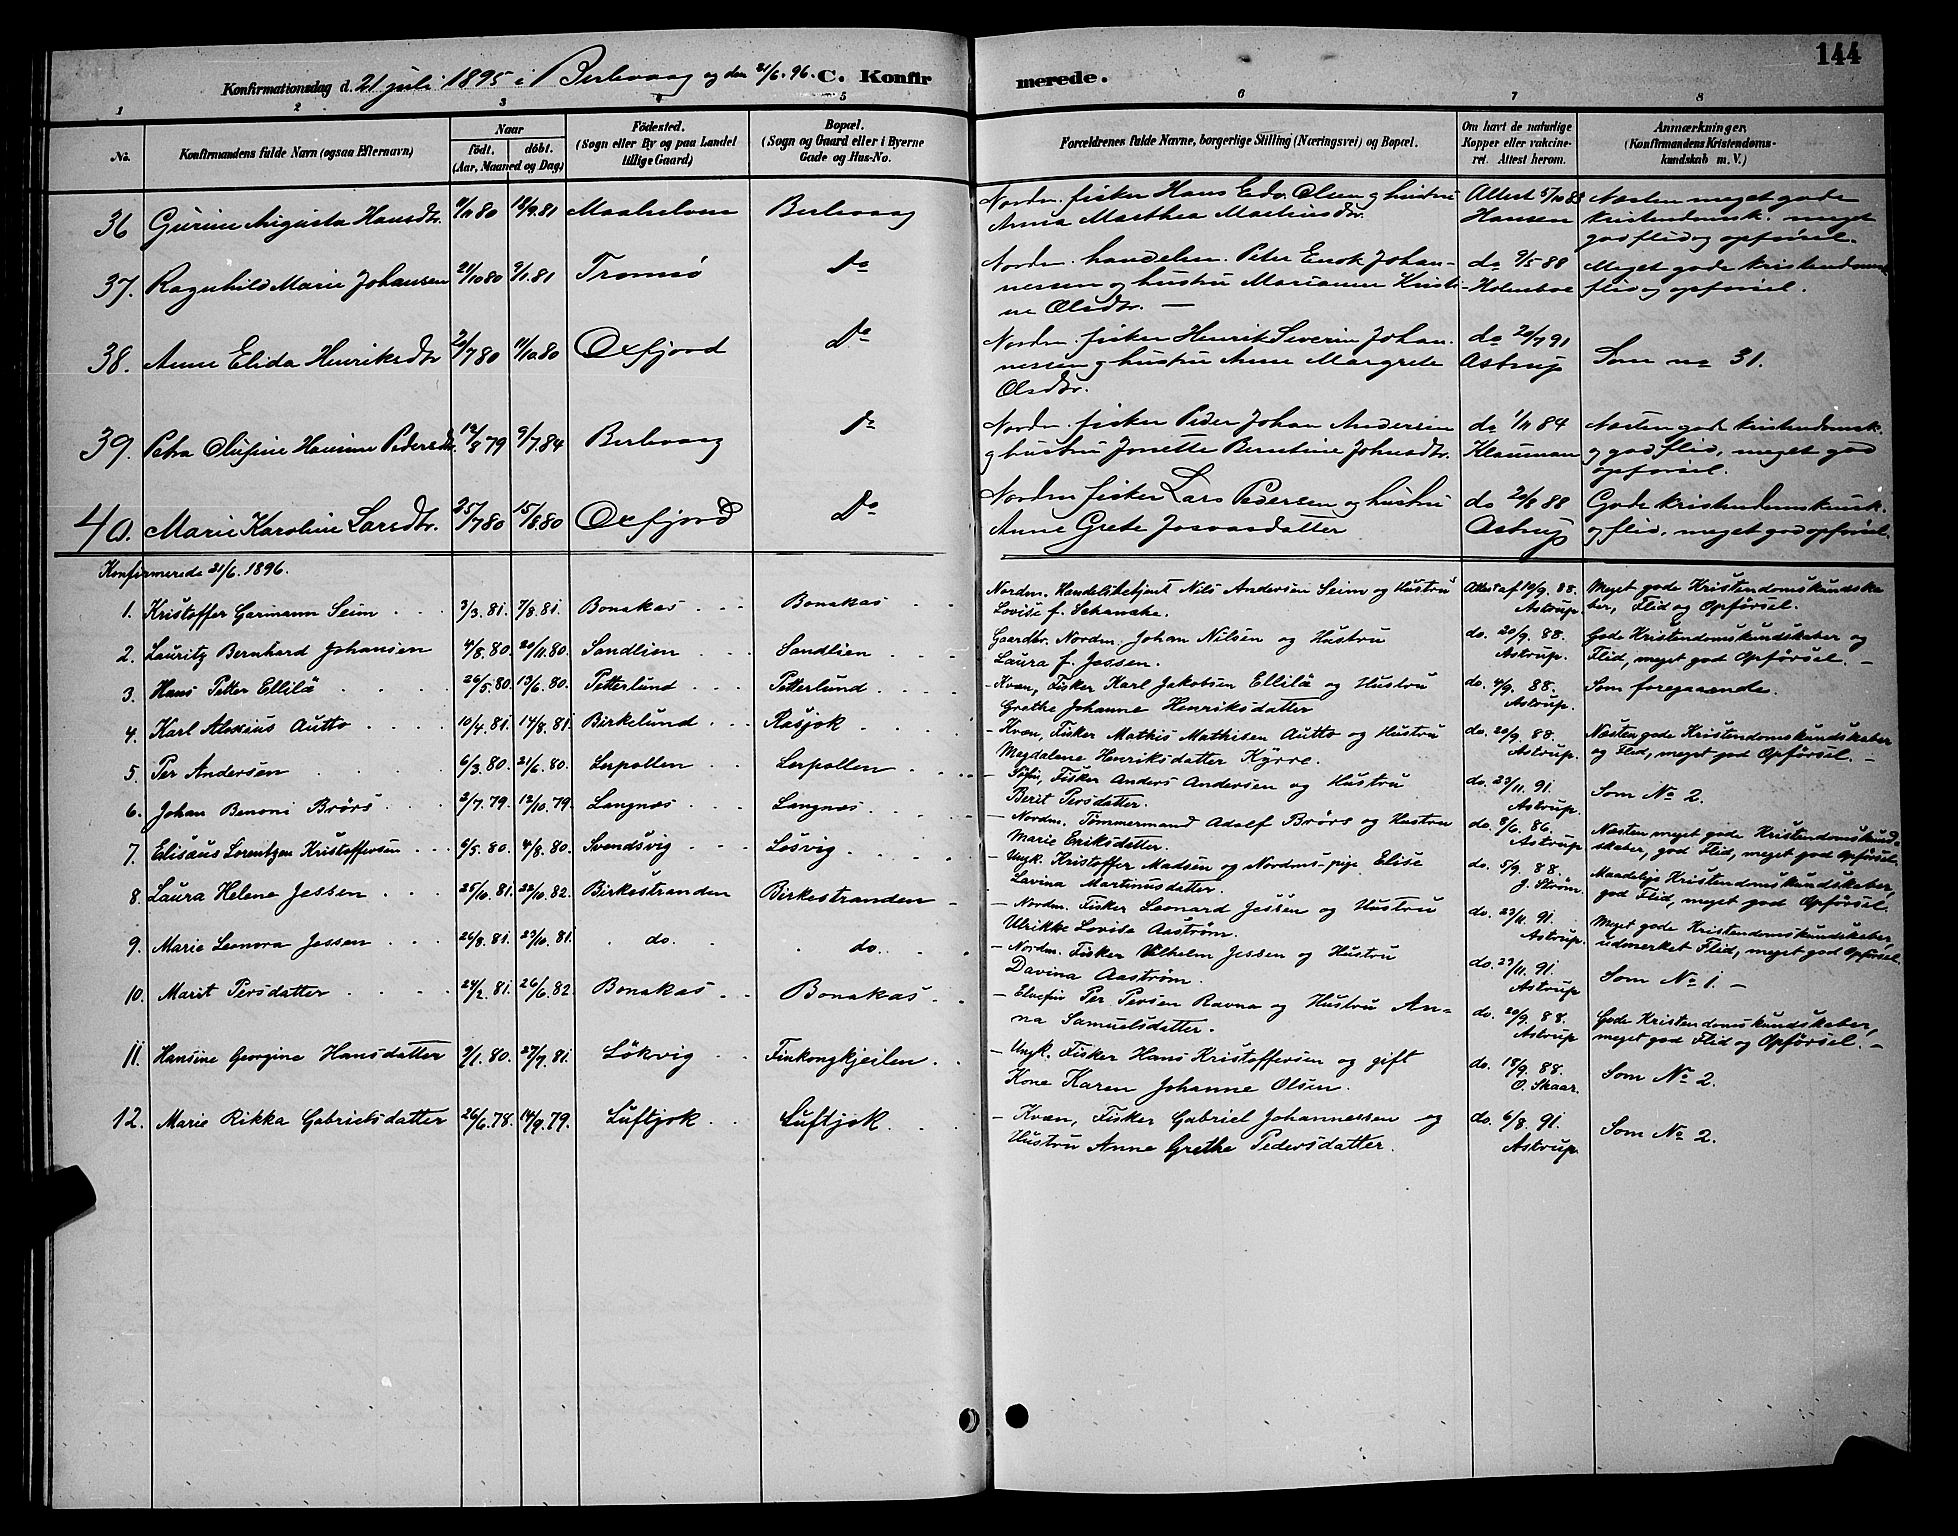 144
Konfirmationsdag d. 21 juli 1895 i Berlevaag og den 21/6. 96. C. Konfirmerede.
1 2 3 4 5 6 7 8
No. Konfirmandens fulde Navn (ogsaa Efternavn) Naar födt. döbt. (Aar, Maaned og Dag) Födested. (Sogn eller By og paa Landet tillige Gaard) Bopæl. (Sogn og Gaard eller i Byerne Gade og Hus-No. Forældrenes fulde Navne, borgerlige Stilling (Næringsvei) og Bopæl. Om havt de naturlige Kopper eller vakcineret. Attest herom. Anmærkninger. (Konfirmandens Kristendomskundskab m. V.)
36 Gurine Augusta Hansdtr. 80 18/9.81 Maalselven Berlevaag Nordm. fisker Hans Edv. Olsen og hustru Attest 5/10 88 Næsten meget gode
Anna Marthea Martinsdtr. Hansen kristendomsk. meget
god flid og opførsel.
37. Ragnhild Marie Johansen 21/10 80 9/1.81 Tromsø Do Nordm. handelsm. Peter Enok Johan- do 9/5 88 Meget gode kristendomsk
nessen og hustru Marianne Kristi- Holmboe flid og opførsel.
ne Olsdtr. —
38. Anne Elida Henriksdtr 2/7 80 11/10 80 Oxfjord Do Nordm. fisker Henrik Severin Johan- do 20/7 91 Som no 31.
nessen og hustru Anne Margrete Astrup
Olsdtr.
39. Petra Olufine Hansine Pedersdtr. 12/8 79 9/7.84 Berlevaag Do Nordm. fisker Peder Johan Andersen do 1/11 84 Næsten god kristendomsk.
og hustru Jonette Berntine Johnsdtr. Klauman og god flid, meget god
opførsel.
40. Marie Karoline Larsdtr. 25/7 80 15/8.80 Oxfjord Do Nordm fisker Lars Pedersen og hustru do 20/8 88 Gode kristendomskunsk.
Anne Grete Josvasdatter Astrup og flid, meget god opførsel.
Konfirmerede 21/6. 1896.
1. Kristoffer Garmann Seim 3/3. 81. 7/8. 81. Bonakas Bonakas Nordm. Handelsbetjent Nils Andersen Seim og Hustru Attest af 10/9. 88. Meget gode Kristendomskundska
Lovise f. Schanche. Astrup. ber, Flid og Opførsel.
2. Lauritz Bernhard Johansen 4/8. 80. 20/11. 80. Sandlien Sandlien Gaardbr. Nordm. Johan Nilsen og Hustru do. 20/9. 88. Gode Kristendomskundskaber og
Laura f. Jessen. Astrup. Flid, meget god Opførsel. —
3. Hans Petter Ellilä 26/5. 80. 13/6. 80. Petterlund Petterlund - Kvæn, Fisker Karl Jakobsen Ellilä og Hustru do. 4/9. 88. Som foregaaende.
Grethe Johanne Henriksdatter Astrup.
4. Karl Aloxius Autto 10/4. 81. 14/8. 81. Birkelund Rasjok - Kvæn, Fisker Mathis Mathisen Autto og Hustru do. 20/9. 88. Næsten gode Kristendomskundskaber
Magdalene Henriksdatter Kyrre. Astrup. og Flid, meget god Opførsel. —
5. Per Andersen 6/3. 80. 21/6. 80. Lerpollen Lerpollen - Søfin, Fisker Anders Andersen og Hustru do. 23/11. 91. Som No 2.
Berit Persdatter. Astrup.
6. Johan Benoni Brørs 2/7. 79. 12/10. 79. Langnæs Langnæs - Nordm. Tømmermand Adolf Brørs og Hustru do. 8/6. 86. Næsten meget gode Kristendomskund-
Marie Eriksdatter. Astrup. skaber, god Flid, meget god Opførsel.
7. Elisæus Lorentzen Kristoffersen 6/5. 80. 4/8. 80. Svendsvig Løsvig - Ungk. Kristoffer Madsen og Nordms-pige Elise do. 5/9. 88. Maadelige Kristendomskundskaber,
Lavina Martinusdatter. J. Strøm. god Flid, meget god Opførsel.
8. Laura Helene Jessen 25/10. 81. 22/10. 82. Birkestranden Birkestranden - Nordm. Fisker Leonard Jessen og Hustru do. 23/11. 91. Meget gode Kristendomskundskaber,
Ulrikke Lovise Aastrøm. Astrup. udmerket Flid, meget god Opførsel.
9. Marie Leonora Jessen 26/8. 81. 23/10. 81. do. do. - Nordm. Fisker Vilhelm Jessen og Hustru do. 23/11. 91. Som No 1. —
Davina Aastrøm. Astrup
10. Marit Persdatter 24/2. 81. 26/6. 82. Bonakas Bonakas - Elvefin Per Persen Ravna og Hustru An- do. 20/9. 88. Gode Kristendomskundskaber,
na Samuelsdatter. Astrup. meget god Flid og Opførsel. —
11. Hansine Georgine Hansdatter 9/1. 80. 27/7. 81. Løkvig Finkongkjeilen - Ungk. Fisker Hans Kristoffersen og gift do. 18/9. 88. Som No 2.
Kone Karen Johanne Olsen. O. Skaar.
12. Marie Rikka Gabrielsdatter 26/6. 78. 14/9. 79. Luftjok Luftjok - Kvæn, Fisker Gabriel Johannessen og do. 6/8. 91. Som No 2.
Hustru Anne Grethe Pedersdatter. Astrup.